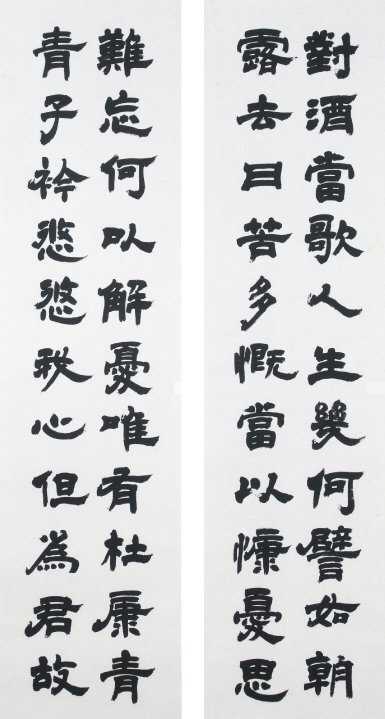 對酒當歌人生幾何譬如朝
露去日苦多慨當以慷憂思
難忘何以解憂唯有杜康青
青子衿悠悠我心但為君故